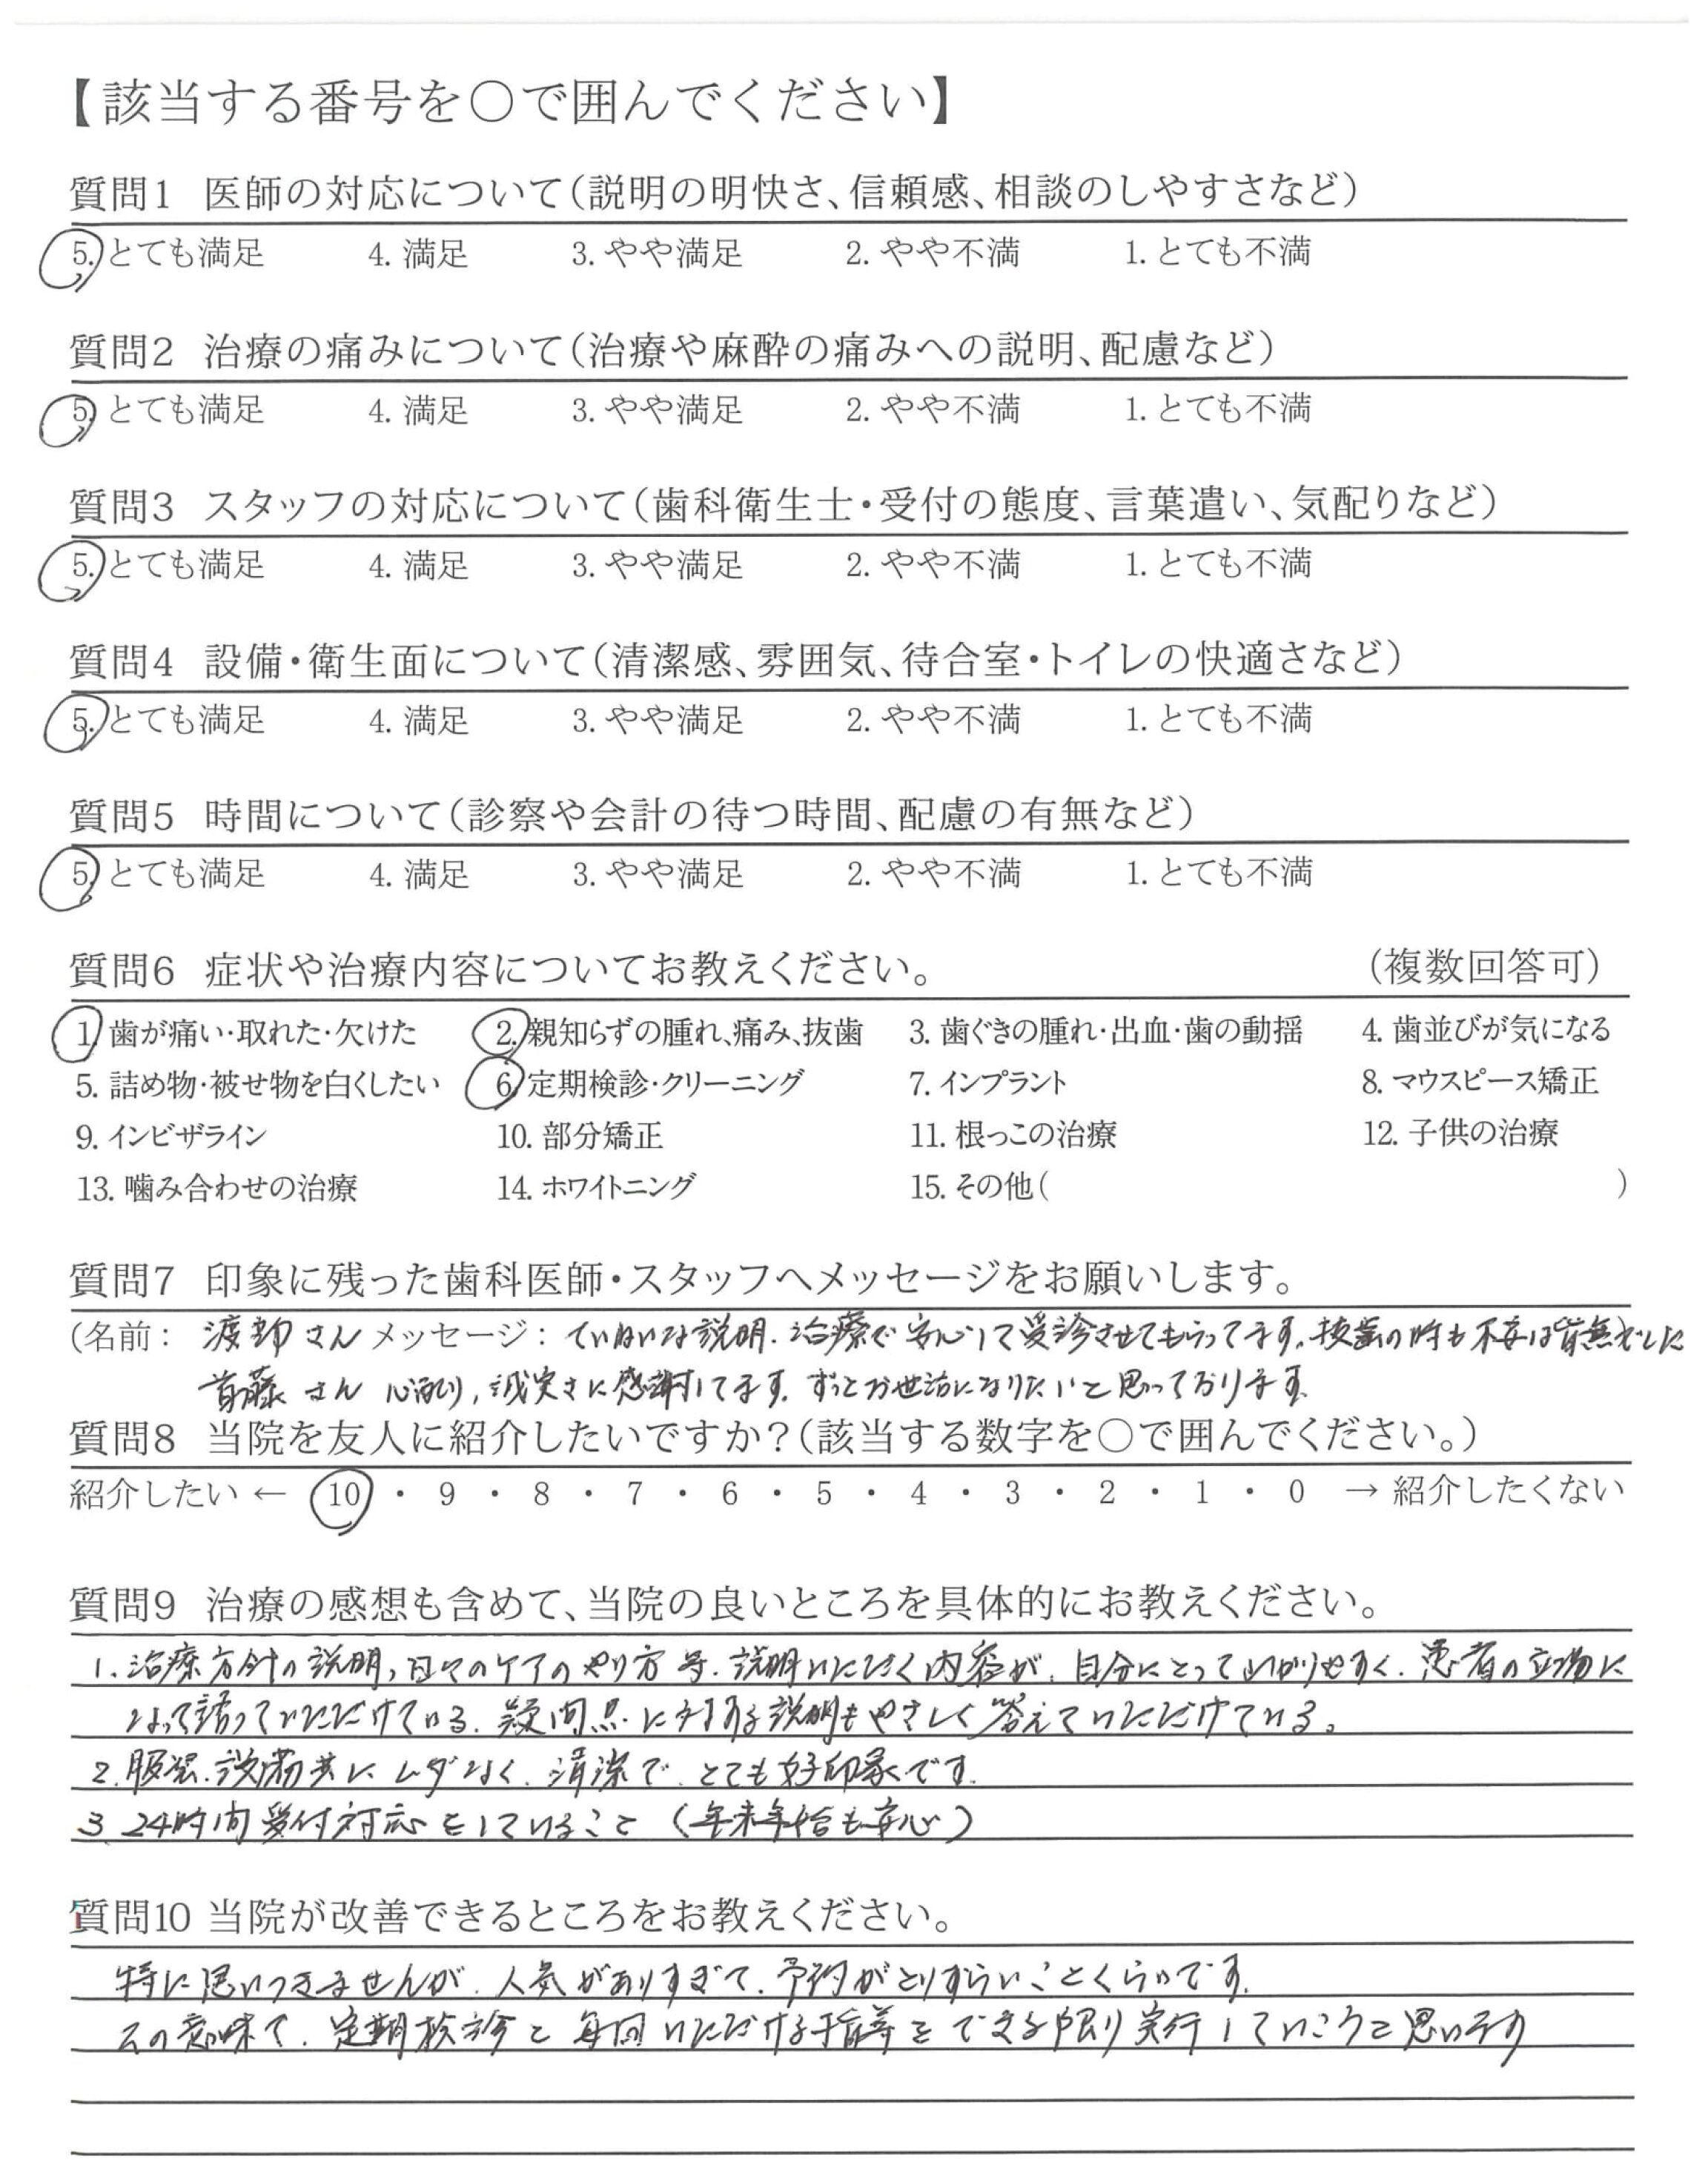 【該当する番号を〇で囲んでください】
質問1 医師の対応について(説明の明快さ、信頼感、相談のしやすさなど)
5. とても満足 4. 満足 3. やや満足 2. やや不満 1. とても不満
質問2 治療の痛みについて(治療や麻酔の痛みへの説明、配慮など)
5. とても満足 4. 満足 3. やや満足 2. やや不満 1. とても不満
質問3 スタッフの対応について(歯科衛生士・受付の態度、言葉遣い、気配りなど)
5. とても満足 4. 満足 3. やや満足 2. やや不満 1. とても不満
質問4 設備・衛生面について(清潔感、雰囲気、待合室・トイレの快適さなど)
5. とても満足 4. 満足 3. やや満足 2. やや不満 1. とても不満
質問5 時間について(診察や会計の待つ時間、配慮の有無など)
5. とても満足 4. 満足 3. やや満足 2. やや不満 1. とても不満
質問6 症状や治療内容についてお教えください。 (複数回答可)
1. 歯が痛い・取れた・欠けた 2. 親知らずの腫れ、痛み、抜歯 3. 歯ぐきの腫れ・出血・歯の動揺 4. 歯並びが気になる
5. 詰め物・被せ物を白くしたい 6. 定期検診・クリーニング 7. インプラント 8. マウスピース矯正
9. インビザライン 10. 部分矯正 11. 根っこの治療 12. 子供の治療
13. 噛み合わせの治療 14. ホワイトニング 15. その他( )
質問7 印象に残った歯科医師・スタッフへメッセージをお願いします。
(名前: 渡部さん メッセージ: ていねいな説明.治療で安心して受診させてもらってます。抜歯の時も不安は皆無でした
首藤さん 心配り,誠実さに感謝してます.ずっとお世話になりたいと思っております.
質問8 当院を友人に紹介したいですか?(該当する数字を〇で囲んでください。)
紹介したい ← 10 ・ 9 ・ 8 ・ 7 ・ 6 ・ 5 ・ 4 ・ 3 ・ 2 ・ 1 ・ 0 → 紹介したくない
質問9 治療の感想も含めて、当院の良いところを具体的にお教えください。
1.治療方針の説明,日々のケアのやり方等.説明いただく内容が.自分にとってわかりやすく.患者の立場に
なって語っていただけている.疑問点に対する説明もやさしく答えていただけている。
2.服装.設備共にムダなく.清潔で.とても好印象です.
3 24時間受付対応をしていること (年末年始も安心)
質問10 当院が改善できるところをお教えください。
特に思いつきませんが.人気がありすぎて.予約がとりずらいことくらいです.
その意味で.定期検診と毎回いただける指導をできる限り実行していこうと思います